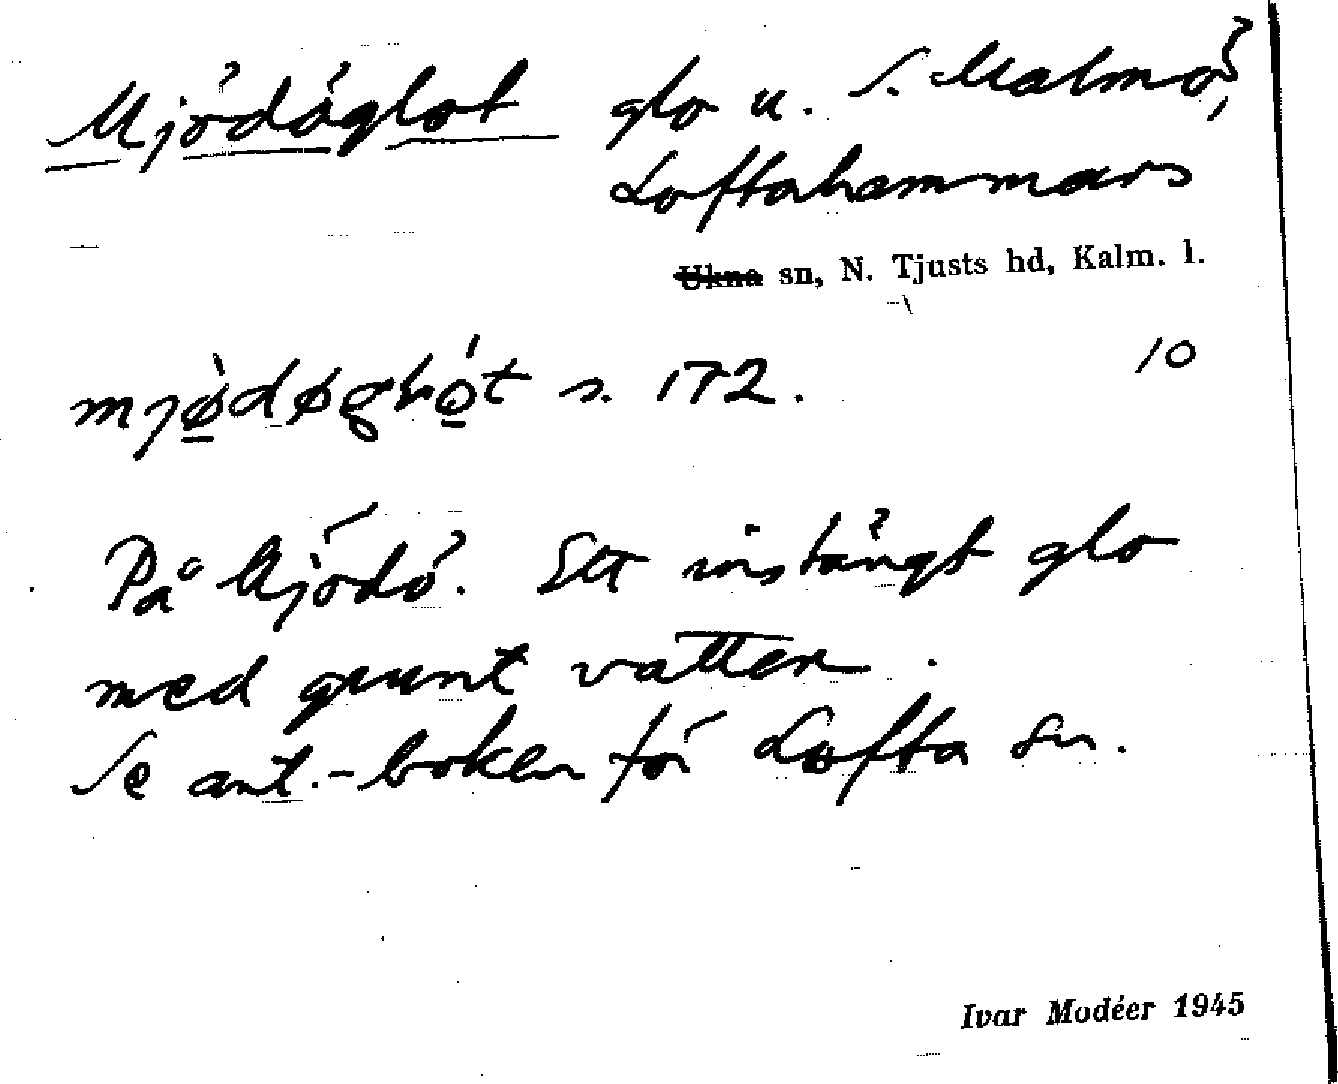 Mjödöglot glo u. S. Malmö,
Loftahammars
Ukna sn, N. Tjusts hd, Kalm. l.
s. 172. 10
På Mjödö. Ett instängt glo
med grunt vatten.
Se ant.-boken för Lofta sn.
Ivar Modéer 1945